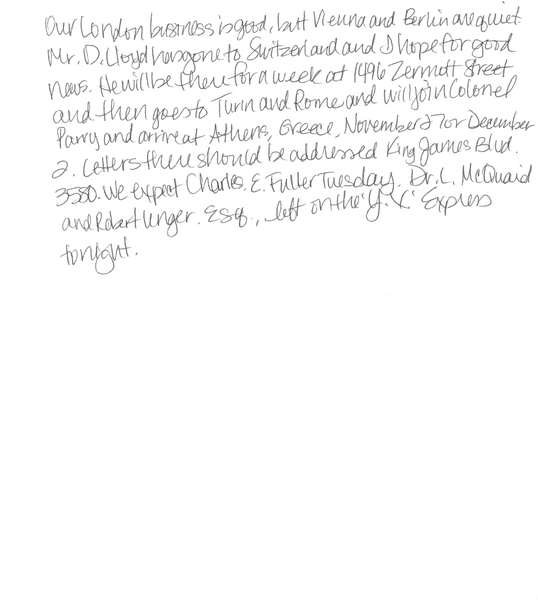 Our London business is good, but Vienna and Berlin are quiet.
Mr. D. Lloyd has gone to Switzerland and I hope for good
news. He will be there for a week at 1496 Zermott Street
and then goes to Turin and Rome and will join Colonel
Parry and arrive at Athens, Greece, November 27 or December
2. Letters there should be addressed King James Blvd.
3580. We expect Charles. E. Fuller Tuesday. Dr. L. McQuaid
and Robert Unger. Esq., left on the 'Y.X.' Express
tonight.